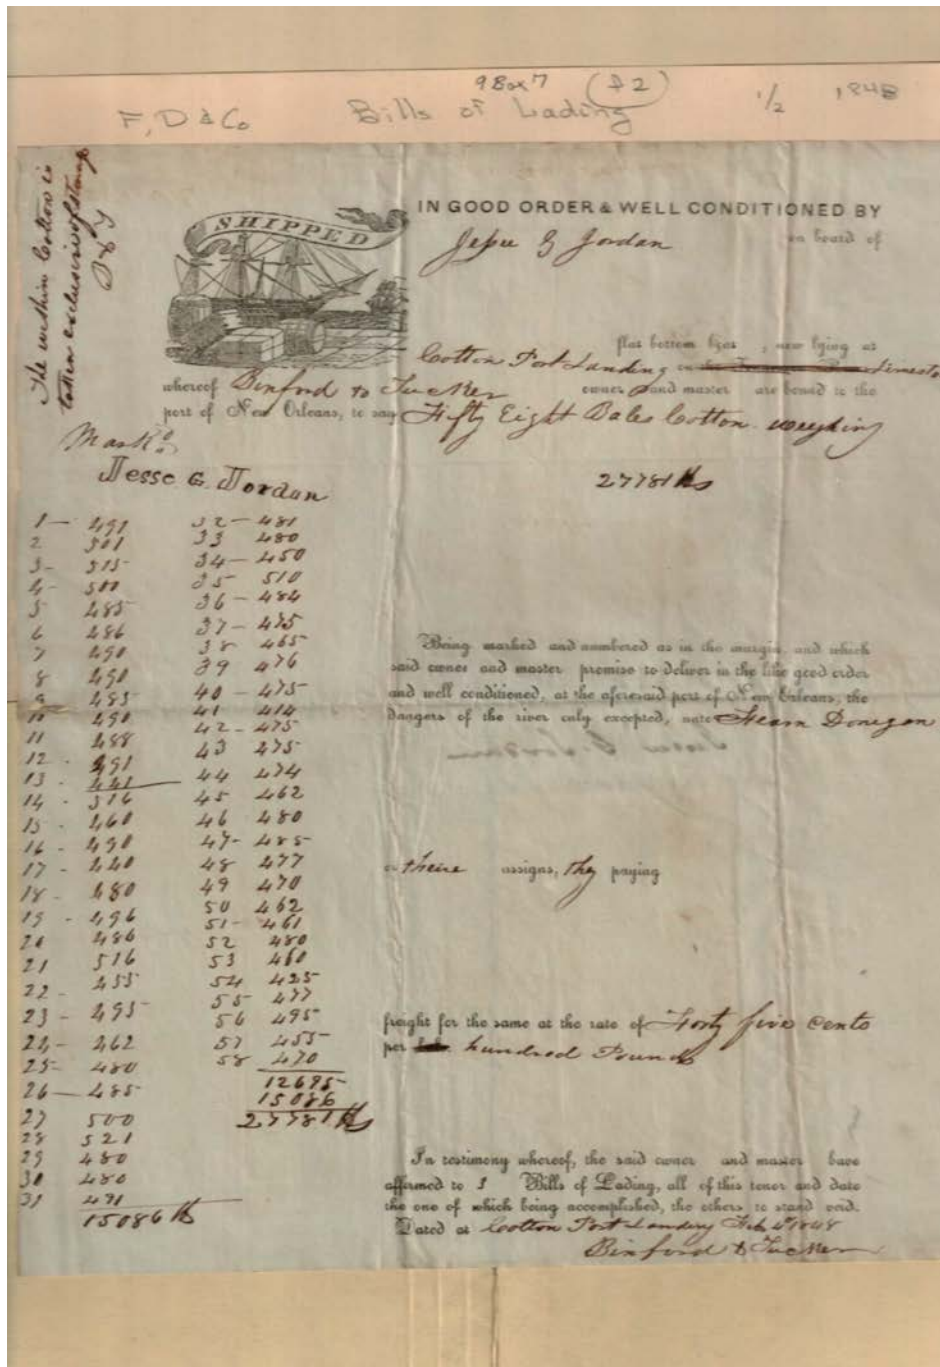 9 Box 7 (f 2)
F, D & Co Bills of Lading 1/2 1848
The within Cotton is
taken exclusive of stamp
B & T
SHIPPED
IN GOOD ORDER & WELL CONDITIONED BY
Jesse G Jordan on board of
flat bottom boat, now lying at
Cotton Port Landing on Limesto
whereof Binford & Tucker owner and master are bound to the
port of New Orleans, to say Fifty Eight Bales Cotton weighing
27781 lbs
Mark'd
Jesse G. Jordan
1 — 491
2 501
3 - 515
4 - 500
5 485
6 486
7 490
8 490
9 485
10 490
11 488
12 - 491
13 - 441
14 - 516
15 - 460
16 - 490
17 - 440
18 - 480
19 - 496
20 486
21 516
22 - 455
23 - 495
24 - 462
25 - 480
26 — 485
27 500
28 521
29 480
30 480
31 491
15086 lbs
32 — 481
33 480
34 — 450
35 510
36 - 484
37 - 475
38 465
39 476
40 - 475
41 414
42 - 475
43 475
44 474
45 462
46 480
47 - 485
48 477
49 470
50 462
51 - 461
52 480
53 460
54 425
55 477
56 495
57 455
58 470
12695
15086
27781 lbs
Being marked and numbered as in the margin, and which
said owner and master promise to deliver in the like good order
and well conditioned, at the aforesaid port of New Orleans, the
dangers of the river only excepted, unto Fearn Donegan
or theire assigns, they paying
freight for the same at the rate of Forty five cents
per hundred Pounds
In testimony whereof, the said owner and master have
affirmed to 3 Bills of Lading, all of this tenor and date
the one of which being accomplished, the others to stand void.
Dated at Cotton Port Landing Feb 4 1848
Binford & Tucker